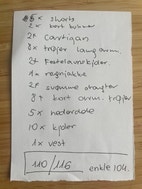 5x shorts
2x kort bukser
2x cartigan
8x trøjer lang ærm.
2x Festelavnkjoler
1x regnjakke
2x svømme dragter
8x kort ærm. trøjer
5x nederdele
10x kjoler
1x vest
110/116 enkle 104.